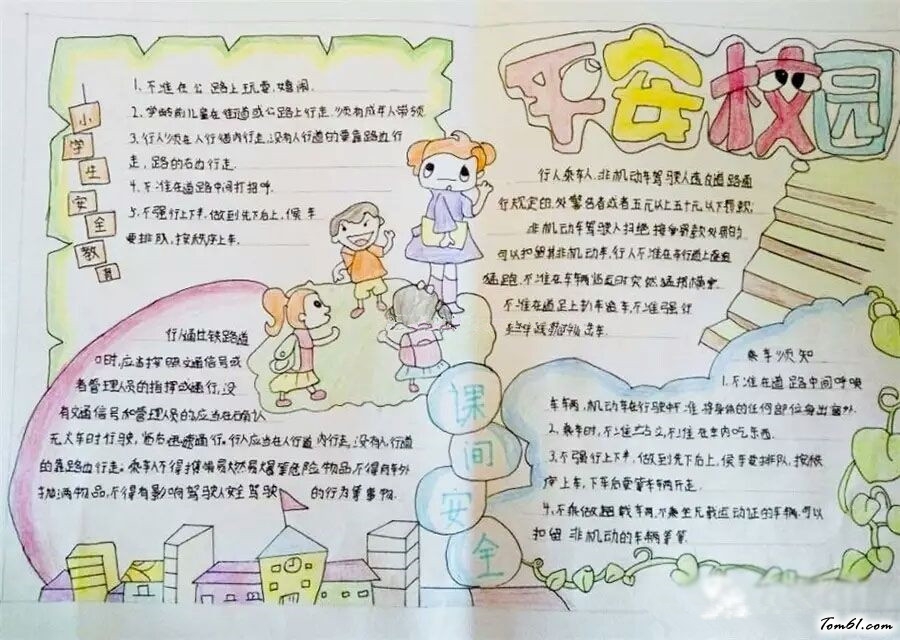 平安校园
小学生安全教育
1.不准在公路上玩耍,嬉闹.
2.学龄前儿童在街道或公路上行走,须有成年人带领
3.行人须在人行道内行走,没有人行道的要靠路边行
走,路的右边行走.
4.不准在道路中间打招呼.
5.不强行上下车,做到先下后上,候车
要排队,按秩序上车.
行人通过铁路道
口时,应当按照交通信号或
者管理人员的指挥或通行,没
有交通信号和管理人员的,应当在确认
无火车时行驶,后迅速通行。行人应当在人行道内行走,没有人行道
的靠路边行走。乘车人不得携带易燃易爆等危险物品不得向车外
抛洒物品,不得有影响驾驶人安全驾驶 的行为等事物.
课间安全
行人乘车人,非机动车驾驶人违反道路通
行规定的,处警告或者五元以上五十元以下罚款;
非机动车驾驶人拒绝接受罚款处罚的
可以扣留其非机动车,行人不准在车行道上
猛跑,不准在车辆临近时突然
不准在道路上扒车追车,不准强行
乘车须知
1.不准在道路中间呼唤
车车辆,机动车在行驶中不准将身体的任何部位身出窗外.
2.乘车时,不准站立,不准在车内吃东西.
3.不强行上下车,做到先下后上,候车要排队,按秩
序上车,下车后要等车辆开走.
4.不乘做超载车辆,不乘坐无载运动证的车辆.可以
扣留 非机动的车辆等等
Tom61.com